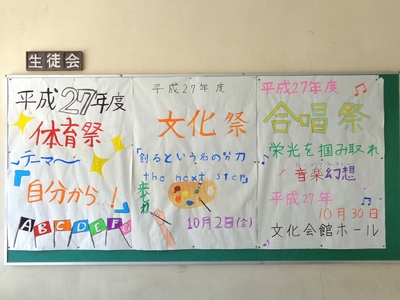 生徒会
平成27年度
体育祭
テーマ
「自分から!」
ABCDEF
平成27年度
文化祭
「創るという名の努力
the next step」
10月2日(土)
平成27年度
合唱祭
栄光を掴み取れ
音楽幻想
平成27年
10月30日
文化会館ホール